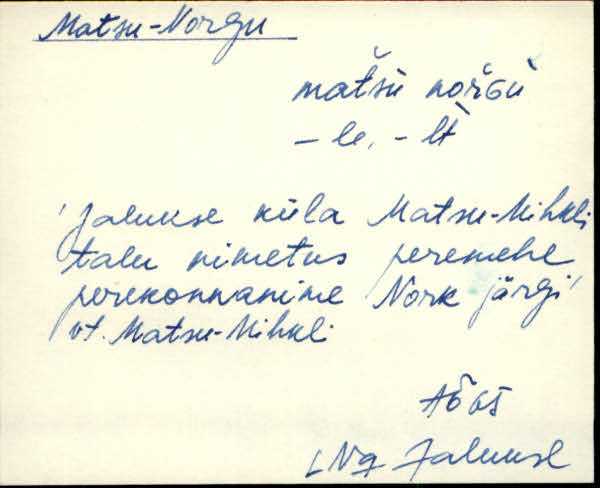 Matsu-Norgu
matšü noŕGü
– le, – lt
'Jalukse küla Matsu-Mihkli
talu nimetus peremehe
perekonnanime Nork järgi'
vt. Matsu-Mihkli
Jalukse